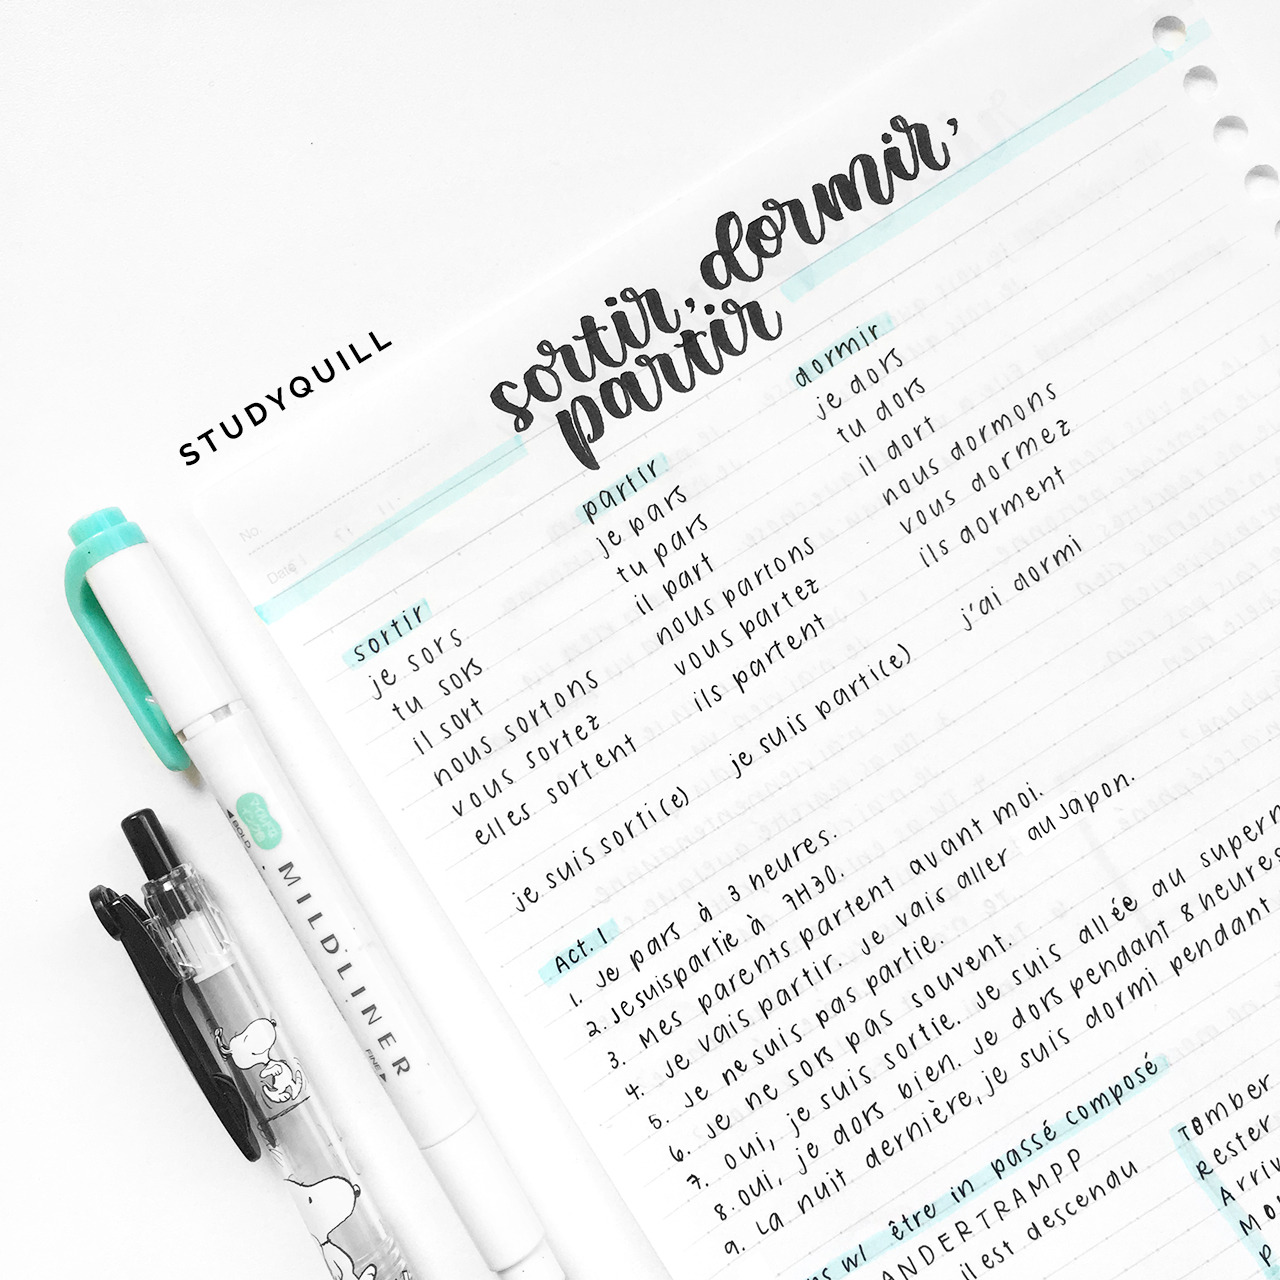 STUDYQUILL
sortir, dormir,
partir
No.
Date
sortir
je sors
tu sors
il sort
nous sortons
vous sortez
elles sortent
je suis sorti(e)
partir
je pars
tu pars
il part
nous partons
vous partez
ils partent
je suis parti(e)
dormir
je dors
tu dors
il dort
nous dormons
vous dormez
ils dorment
j'ai dormi
Act. 1
1. Je pars à 3 heures.
2. Je suis partie à 7H30.
3. Mes parents partent avant moi.
4. Je vais partir. Je vais aller au Japon.
5. Je ne suis pas partie.
6. Je ne sors pas souvent.
7. Oui, je suis sortie. Je suis allée au
8. Oui, je dors bien. Je dors pendant 8 heures
9. La nuit dernière, je suis dormi pendant
w/ être in passé composé
ANDERTRAMPP
il est descendu
Tomber
Rester
BOLD
MILDLINER
FINE